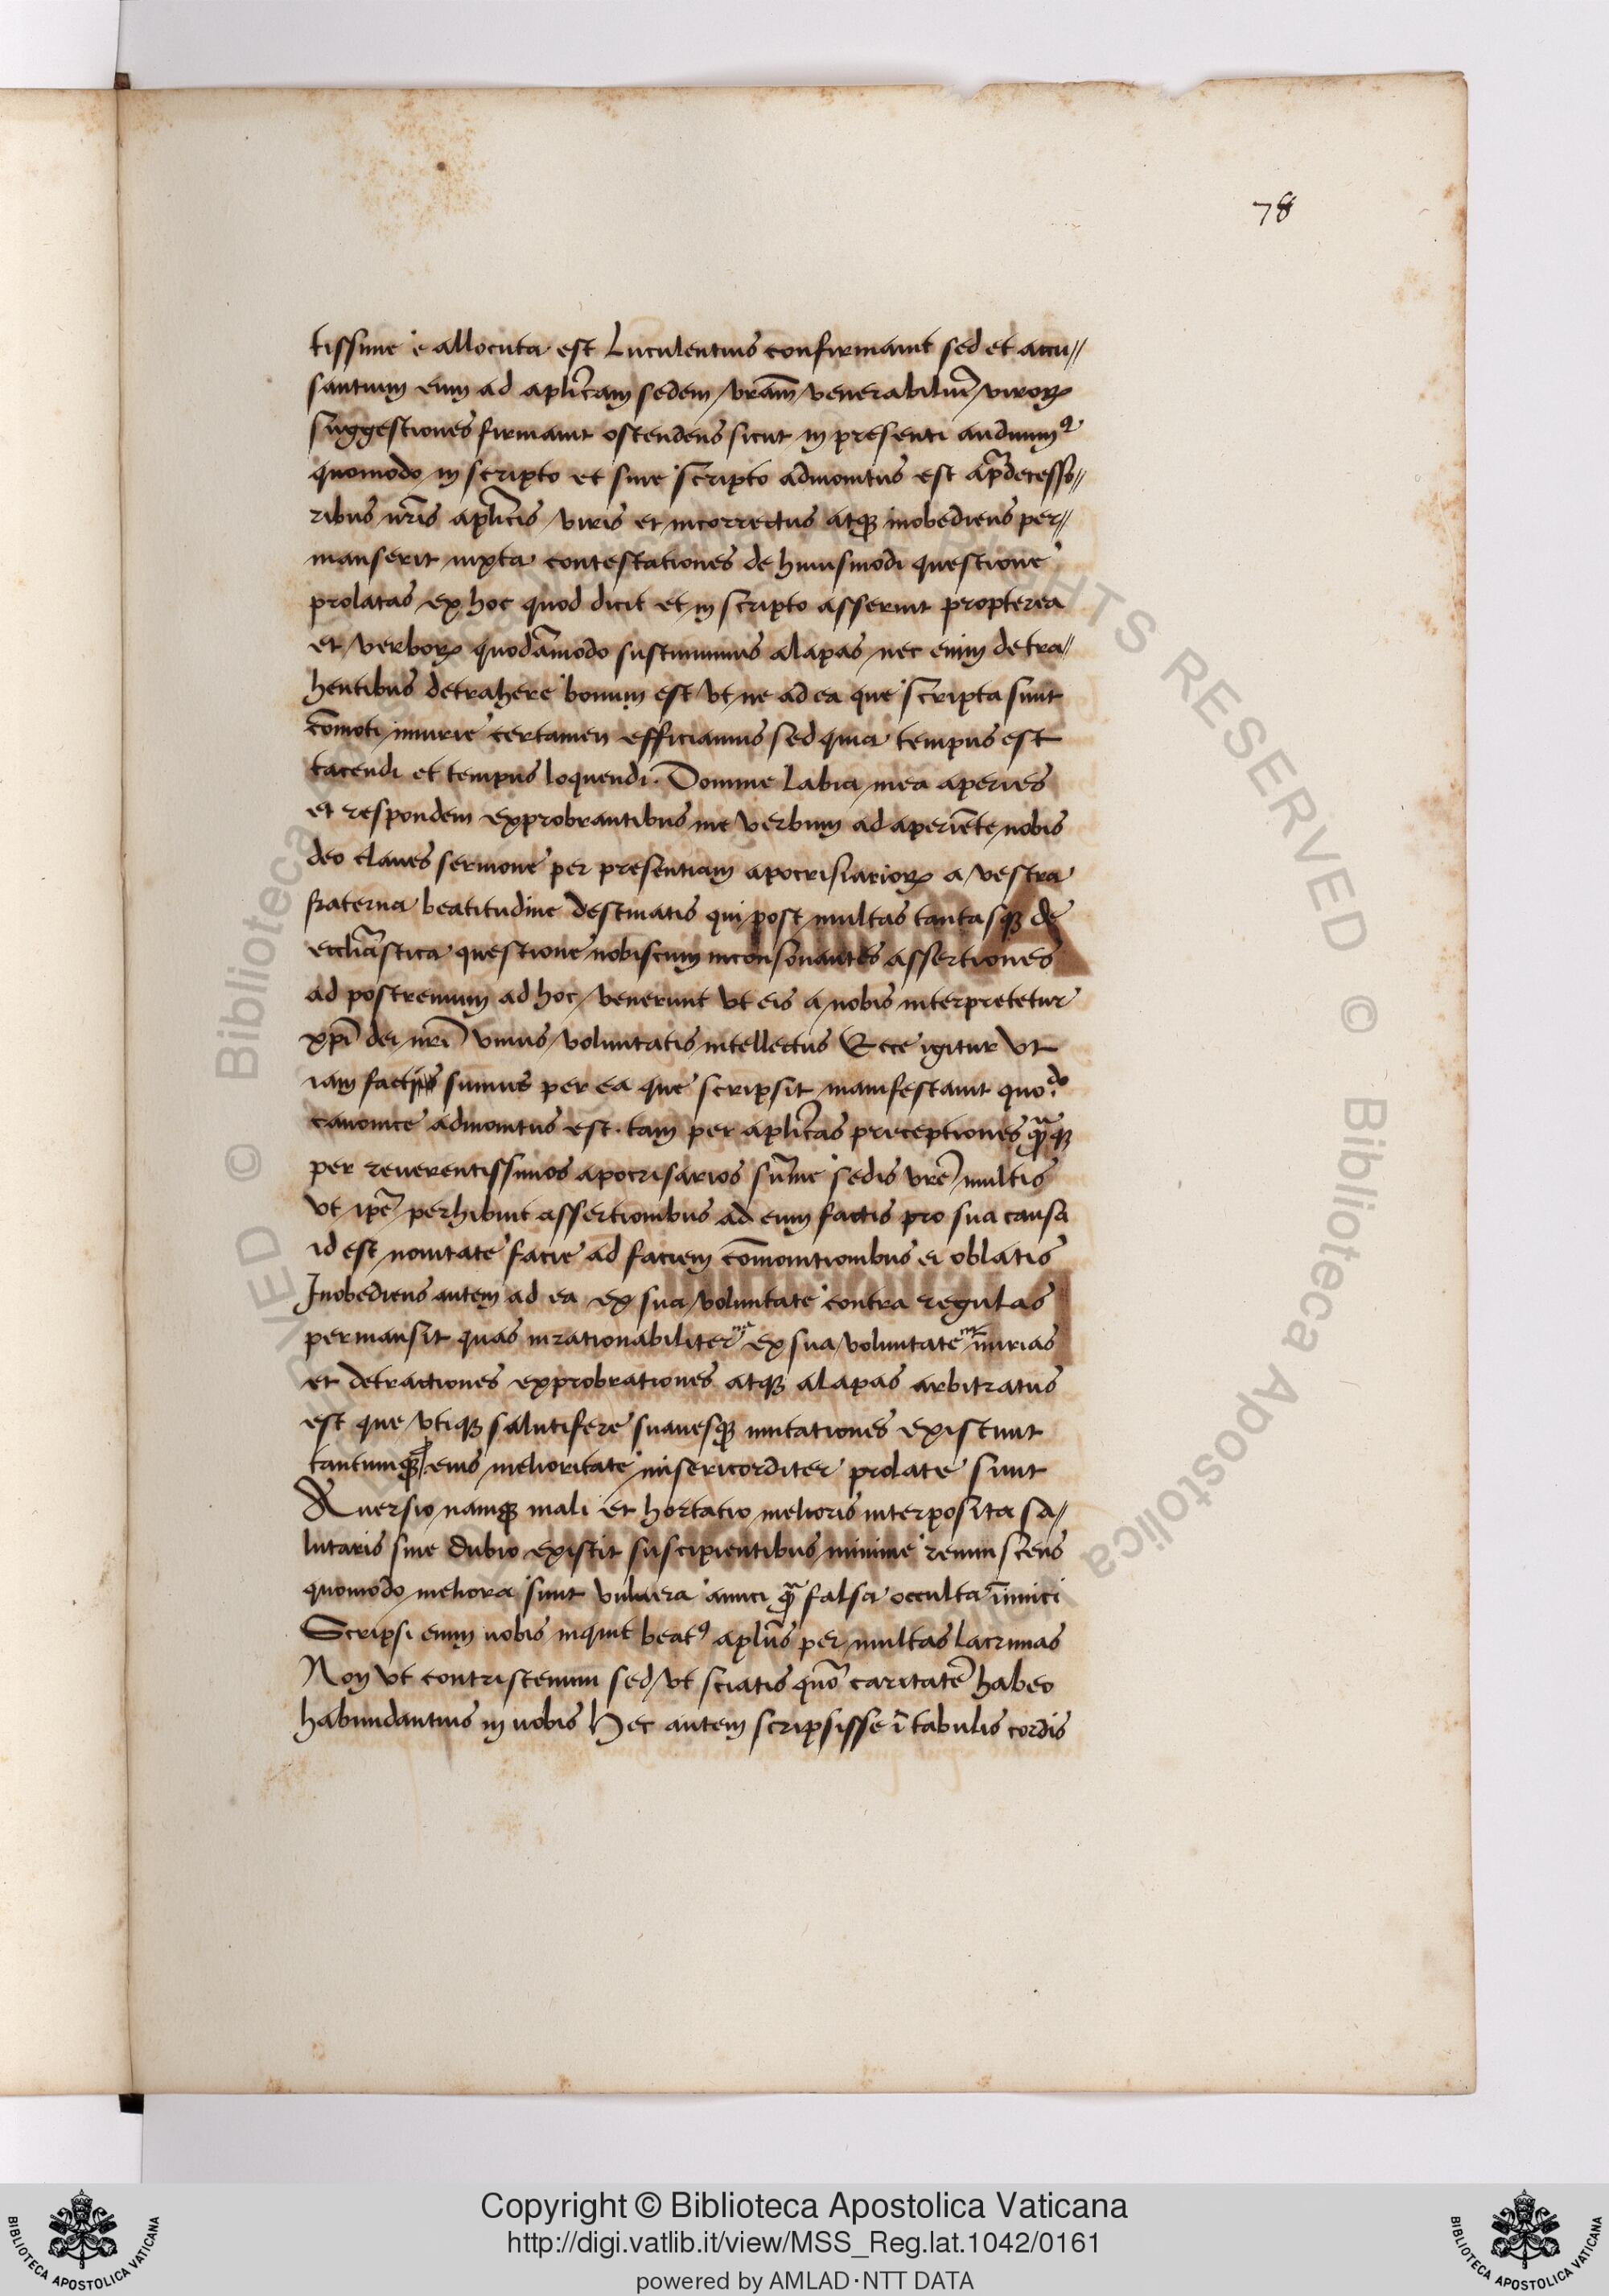 78
tissime e allocuta est Luculentius confirmauit sed et accu//
santium eum ad apłicam sedem vr̃am venerabiliũ viroꝝ
suggestiones firmauit ostendens sicut in presenti audiuimꝰ
quomodo in scripto et sine scripto admonitus est a p̃decesso//
ribus nr̃is apłicis viris et incorrectus atqꝫ inobediens per//
manserit iuxta contestationes de huiusmodi questione
prolatas ex hoc quod dicit et in scripto asseruit propterea
et verboꝝ quodãmodo sustinuimus alapas nec enim detra//
hentibus detrahere bonum est vt ne ad ea que scripta sunt
cõmoti iniurie certamen efficiamus sed quia tempus est
tacendi et tempus loquendi. Domine labia mea aperies
et respondem exprobrantibus me verbum ad aperiẽte nobis
deo claues sermone per presentiam apocrisiarioꝝ a vestra
fraterna beatitudine destinatis qui post multas tantasqꝫ de
eccliãstica questione nobiscum inconsonantes assertiones
ad postremum ad hoc venerunt vt eis a nobis interpretetur
xp̃i dei nr̃i vnius voluntatis intellectus Ecce igitur vt
iam sumus per ea que scripsit manifestauit quo.do
canonice admonitus est. tam per apłicas preceptiones q̃qꝫ
per reuerentissimos apocrisarios sũme sedis vrẽ multis
vt ip̃e perhibuit assertionibus ad eum factis pro sua causa
id est nouitate facie ad faciem cõmonitionibus ei oblatis
Inobediens autem ad ea ex sua voluntate contra regulas
permansit quas inrationabiliter ex sua voluntate iniurias
et detractiones exprobrationes atqꝫ alapas arbitratus
est que vtiqꝫ salutifere suauesqꝫ mutationes existunt
eius melioritate misericorditer prolate sunt
Auersio namqꝫ mali et hortatio melioris interposita sa//
lutaris sine dubio existit suscipientibus minime reminiscens
quomodo meliora sunt vulnera amici q̃ falsa occulta inimici
Scripsi enim uobis inquit beatꝰ apłus per multas lacrimas
Non vt contristemini sed vt sciatis quõ caritatẽ habeo
habundantius in uobis Hec autem scripsisse ĩ tabulis cordis
© Biblioteca Apostolica Vaticana
RIGHTS RESERVED © Biblioteca Apostolica
BIBLIOTECA APOSTOLICA VATICANA
Copyright © Biblioteca Apostolica Vaticana
http://digi.vatlib.it/view/MSS_Reg.lat.1042/0161
powered by AMLAD·NTT DATA
BIBLIOTECA APOSTOLICA VATICANA